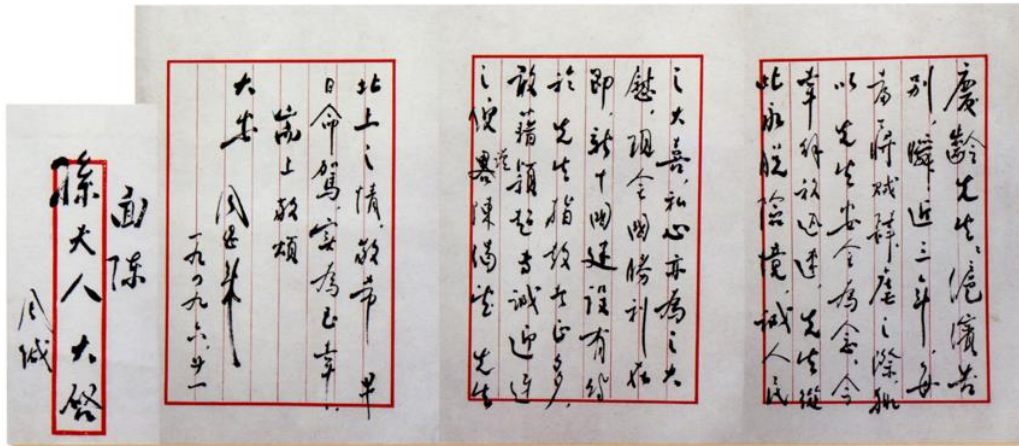 慶齡先生：滬濱告
別，瞬近三年，每
當蔣賊肆虐之際，輒
以先生安全為念。今
幸解放迅速，先生從
此永脫險境，誠人民
之大喜，私心亦為之大
慰。現全國勝利在
即，新中國建設有待
於先生指教者正多，
敢藉穎超專誠迎迓
之便，謹畧陳渴望先生
北上之情，敬希早
日命駕，實為至幸。
耑上敬頌
大安
周恩來
一九四九、六、廿一
面陳
孫夫人大啓
周緘